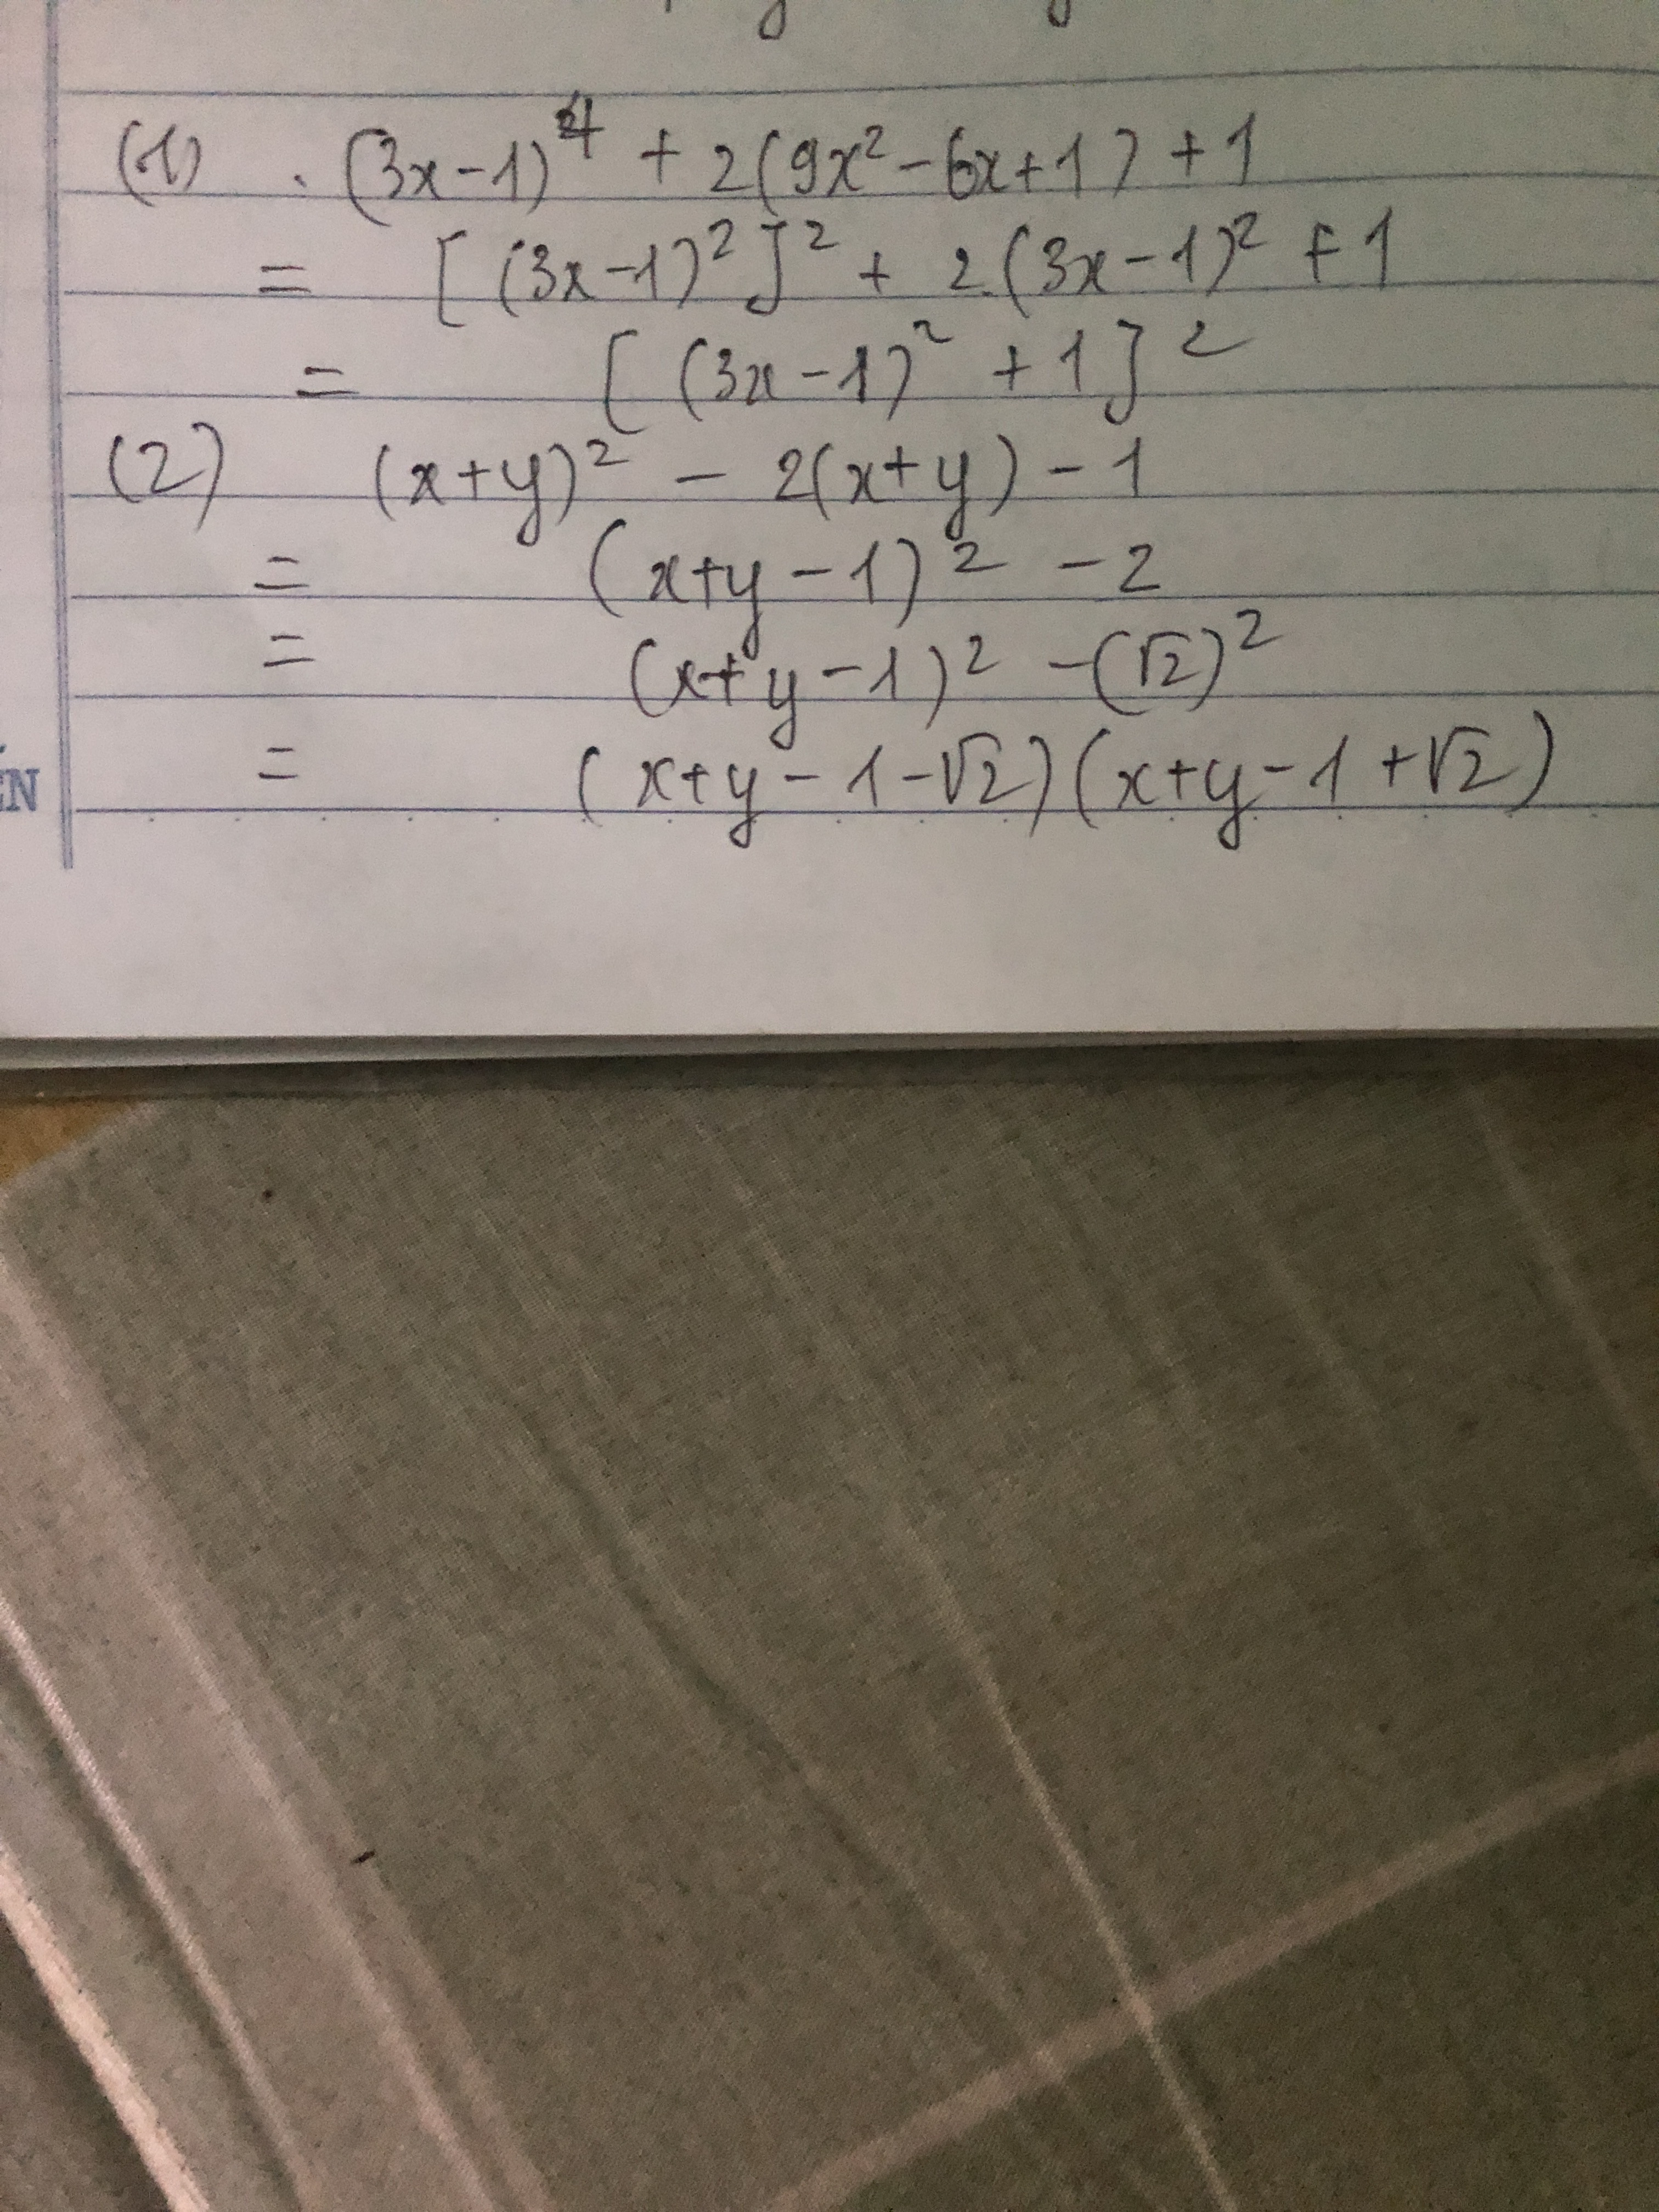 (1) . (3x-1)⁴ + 2(9x² - 6x + 1) + 1
= [(3x-1)²]² + 2.(3x-1)² + 1
= [(3x-1)² + 1]²
(2) (x+y)² - 2(x+y) - 1
= (x+y-1)² - 2
= (x+y-1)² - (√2)²
= (x+y-1-√2)(x+y-1+√2)